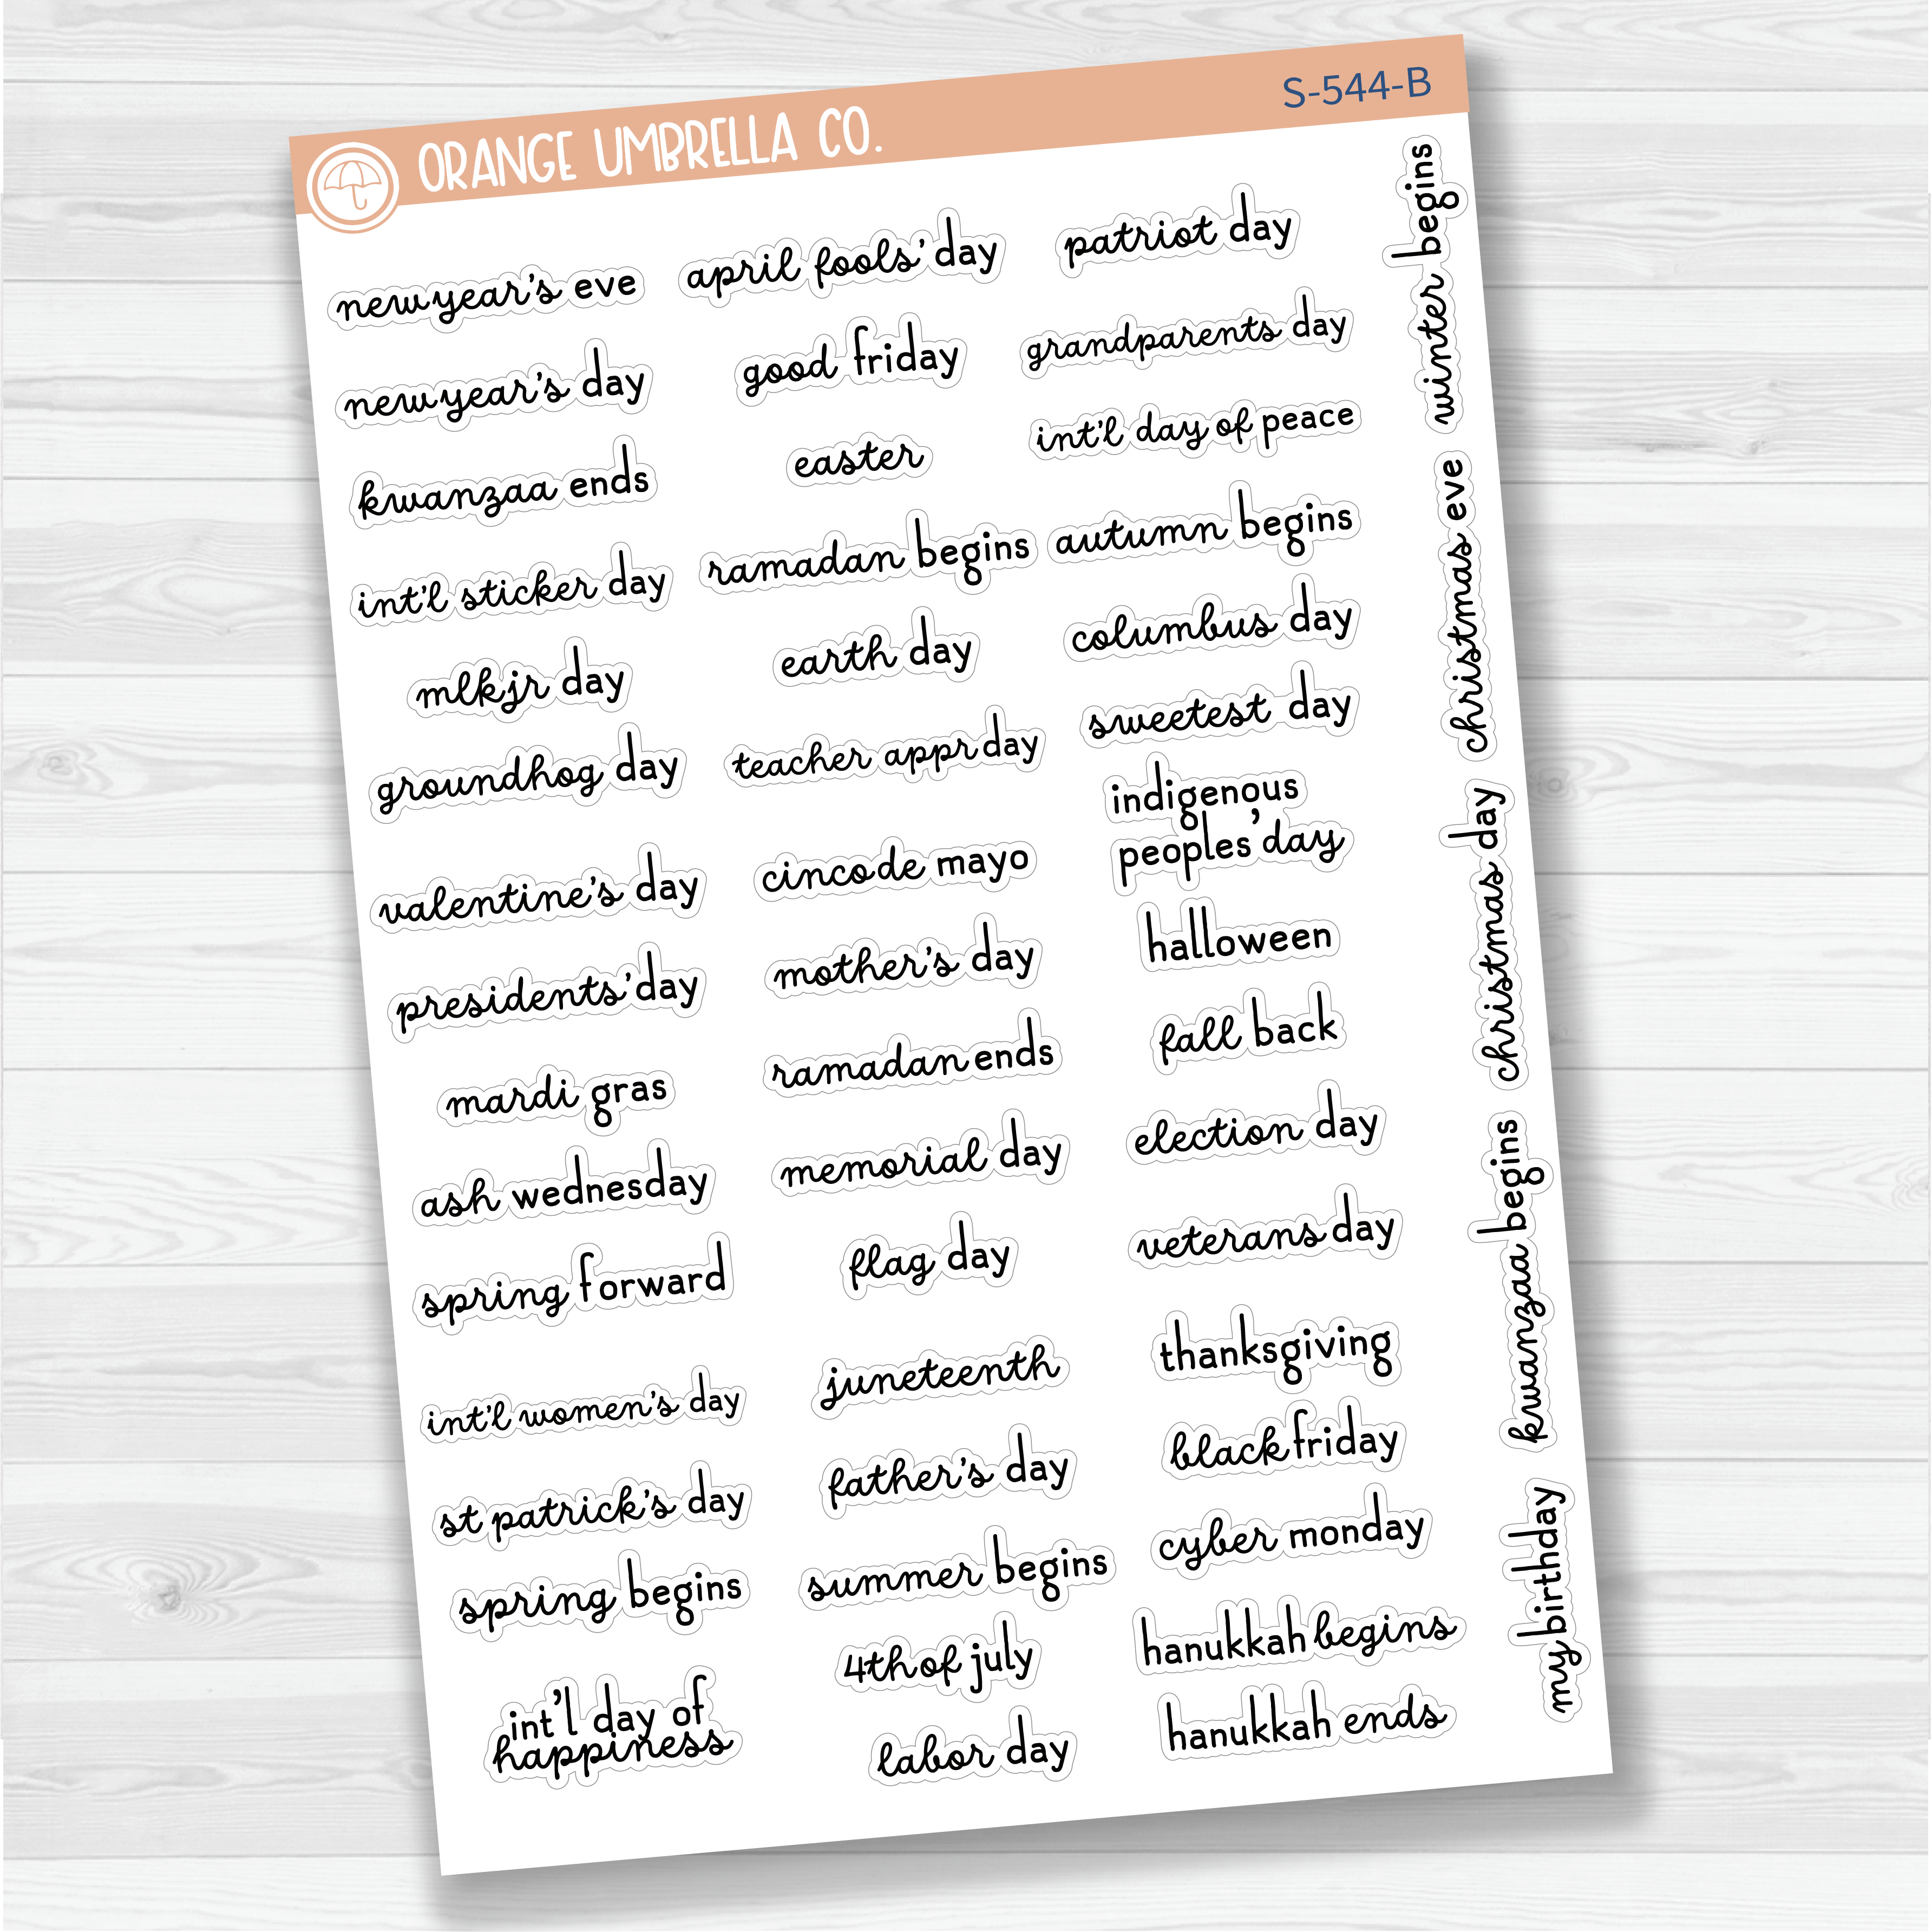 ORANGE UMBRELLA CO.
S-544-B
new year's eve
new year's day
kwanzaa ends
int'l sticker day
mlk jr day
groundhog day
valentine's day
presidents' day
mardi gras
ash wednesday
spring forward
int'l women's day
st patrick's day
spring begins
int'l day of
happiness
april fools' day
good friday
easter
ramadan begins
earth day
teacher appr day
cinco de mayo
mother's day
ramadan ends
memorial day
flag day
juneteenth
father's day
summer begins
4th of july
labor day
patriot day
grandparents day
int'l day of peace
autumn begins
columbus day
sweetest day
indigenous
peoples' day
halloween
fall back
election day
veterans day
thanksgiving
black friday
cyber monday
hanukkah begins
hanukkah ends
winter begins
christmas eve
christmas day
kwanzaa begins
my birthday